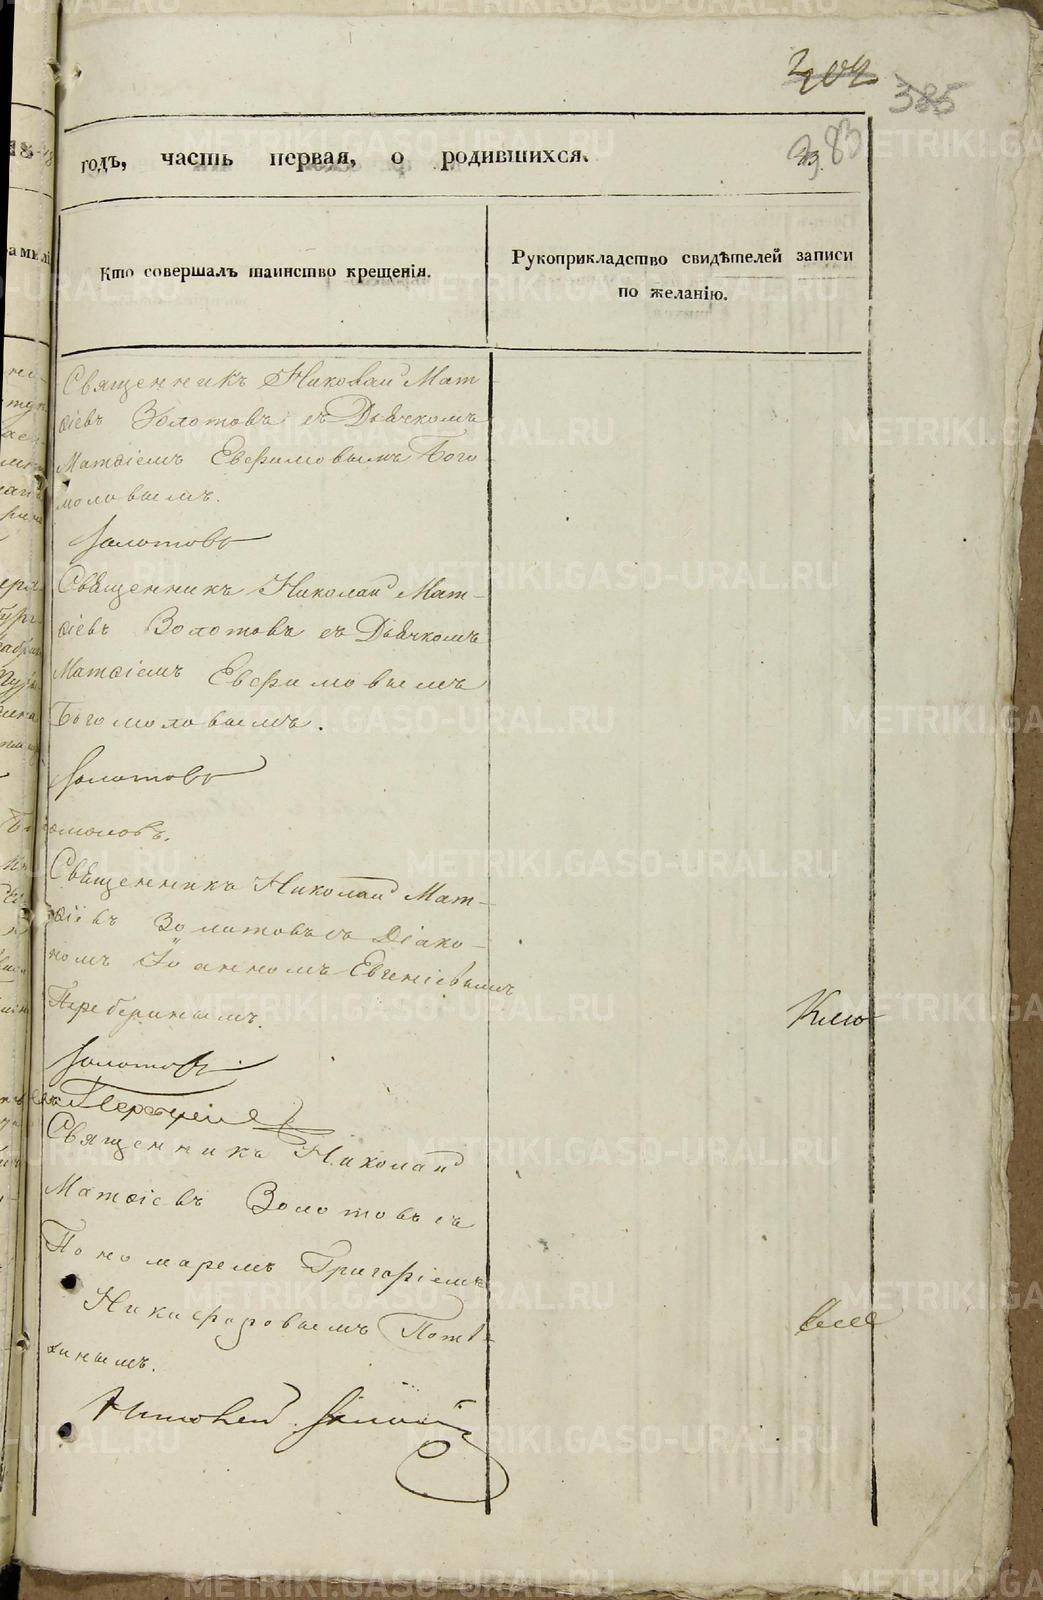 204
385
383
годъ, часть первая, о родившихся.
Кто совершалъ таинство крещенія.
Рукоприкладство свидѣтелей записи
по желанію.
Священникъ Николай Мат
ѳіевъ Золотовъ съ Дьячкомъ
Матѳіемъ Евфимовымъ Бого
моловымъ.
Золотовъ
Священникъ Николай Мат-
ѳіевъ Золотовъ съ Дьячкомъ
Матѳіемъ Евфимовымъ
Богомоловымъ.
Золотовъ
Богомоловъ.
Священникъ Николай Мат-
ѳіевъ Золотовъ съ Діако-
номъ Іоанномъ Евгеніевымъ
Перебернымъ.
Золотовъ
Священникъ Николай
Матѳіевъ Золотовъ съ
Пономаремъ Григоріемъ
Никифоровымъ Потѣ-
хинымъ.
Николай Золотовъ
METRIKI.GASO-URAL.RU